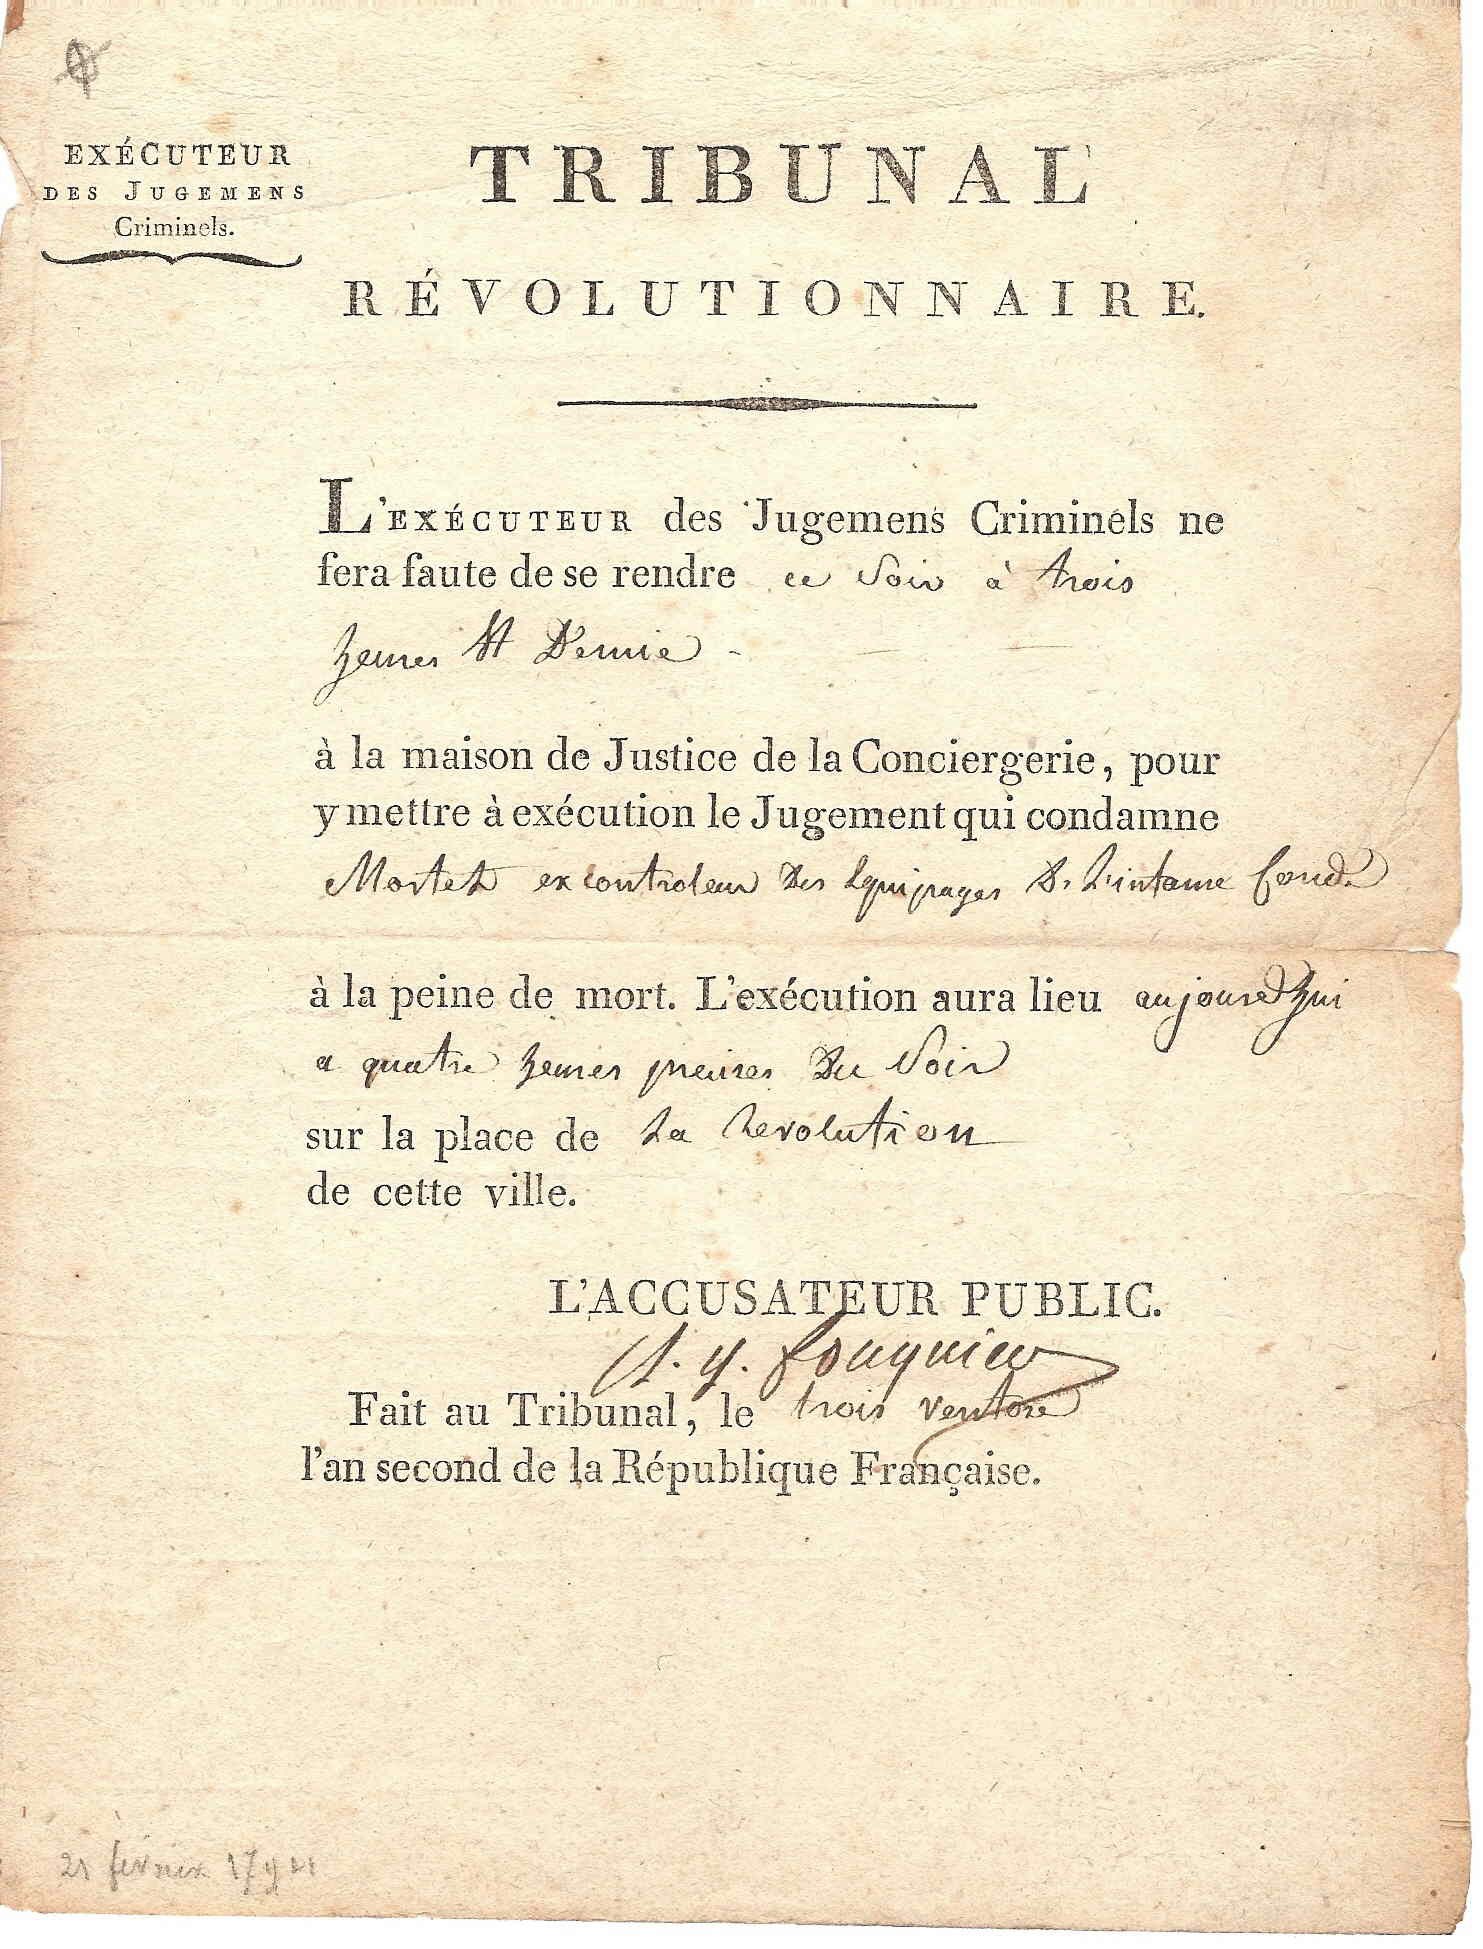 EXÉCUTEUR
DES JUGEMENS
Criminels.
TRIBUNAL
RÉVOLUTIONNAIRE.
L'EXÉCUTEUR des Jugemens Criminels ne
fera faute de se rendre ce Soir à trois
heures Et Demie
à la maison de Justice de la Conciergerie, pour
y mettre à exécution le Jugement qui condamne
Mortet ex controleur Des Equipages De
à la peine de mort. L'exécution aura lieu aujourd'hui
a quatre heures precises Du Soir
sur la place de La revolution
de cette ville.
L'ACCUSATEUR PUBLIC.
A. Q. Fouquier
Fait au Tribunal, le trois ventose
l'an second de la République Française.
21 fevrier 1794